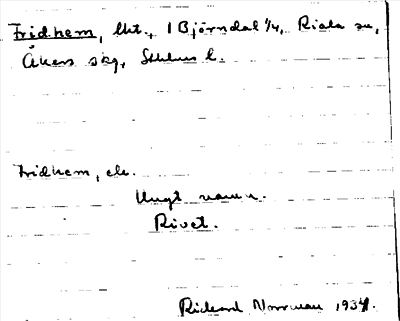 Fridhem, lht., 1 Björndal 1/4, Riala sn,
Åkers skg, Sthlms l.
Fridhem, eh.
Ungt namn.
Rivet.
Rickard Norrman 1934.